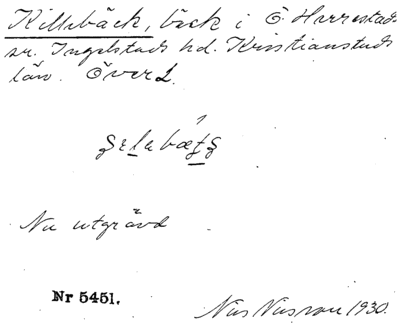 Killebäck, bäck i Ö Herrestads
sn. Ingelstads hd. Kristianstads
län. Överl.
Nu utgrävd
Nr 5451.
Nils Nilsson 1930.